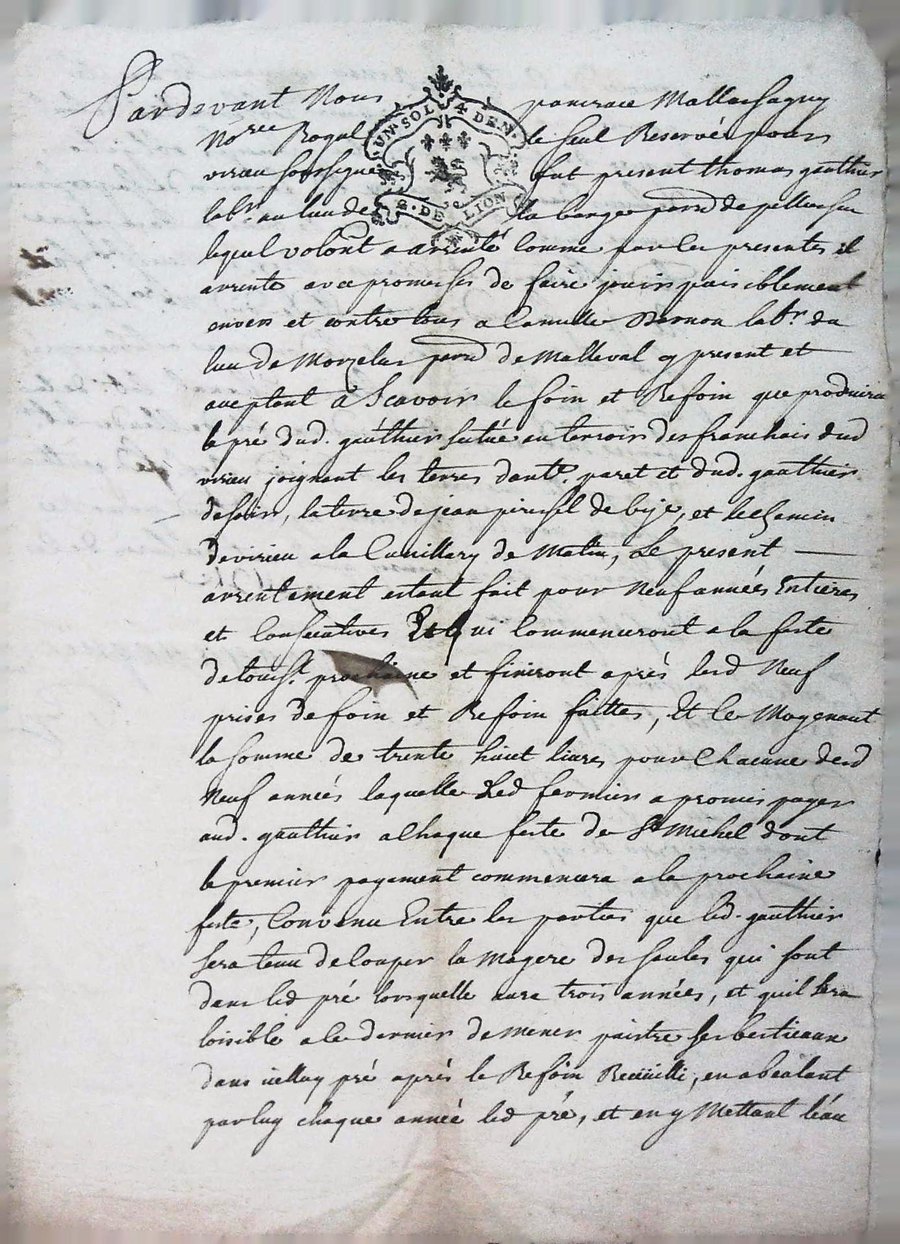 UN·SOL·4·DEN·
G·DE LION
Pardevant Nous pancrace Mallassagny
No.re Royal le seul Reservé pour
virieu soussigné fut present thomas gauthier
lab.r au lieu de la barge par.se de pellussin
lequel volont.t a arrenté comme par les presentes il
arrente avec promesses de faire jouir paisiblement
envers et contre tous a Camille Dernon lab.r du
lieu de par.se de Malleval cy present et
aceptant a Scavoir le foin et Refoin que produira
le pré dud. gauthier situé en terroir des franchais dud
virieu joignant les terres d'ant.e paret et dud. gauthier
de soir, la terre de jean de bije, et le chemin
de virieu a la de Matin, Le present
arrentement estant fait pour Neuf années Entieres
et Consecutives Et qui commenceront a la feste
de touss.t prochaine et finiront après lesd Neuf
prises de foin et Refoin faittes, Et Ce Moyenant
la somme de trente huit livres pour Chacune desd
Neuf années laquelle Led fermier a promis payer
aud. gauthier a Chaque feste de S.t Michel dont
le premier payement commencera a la prochaine
feste, Convenu Entre les parties que led. gauthier
sera tenu de couper la Magere des saules qui sont
dans led pré lorsquelle aura trois années, et quil sera
loisible a ce dernier de Mener paistre ses bestieaux
dans icelluy pré après le Refoin Recüeilli, en abealant
par luy chaque année led pré, et en y Mettant l'eau